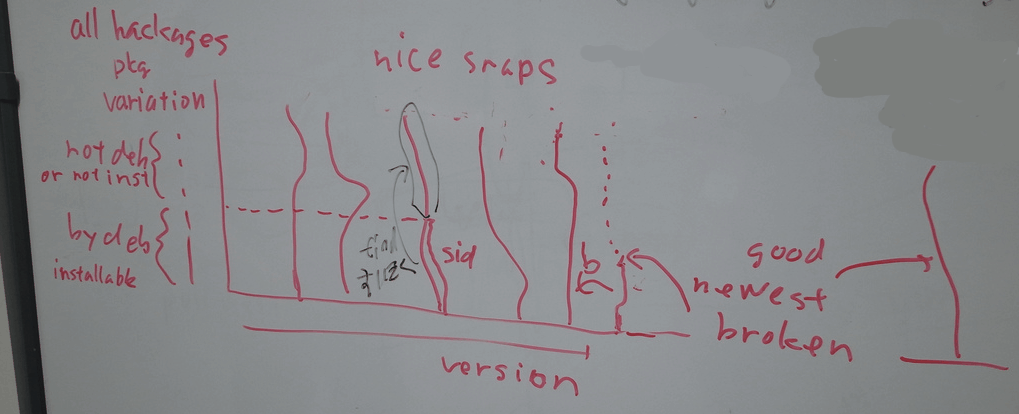 all hackages
pkg
variation
nice snaps
not deb
or not inst
by deb
installable
find
sid
b
good
newest
broken
version